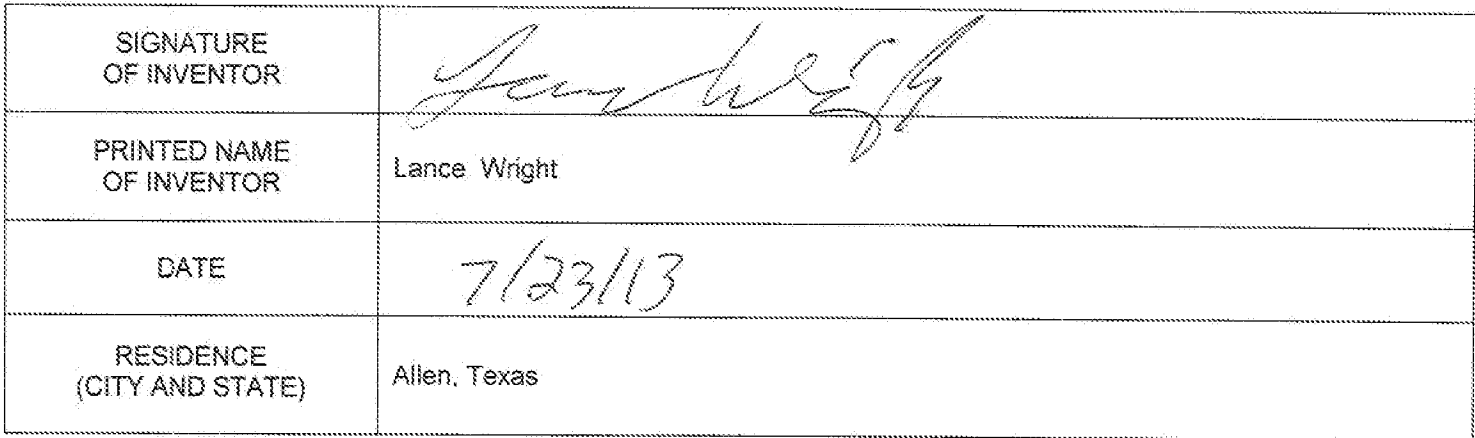 SIGNATURE
OF INVENTOR
PRINTED NAME
OF INVENTOR
Lance Wright
DATE
7/23/13
RESIDENCE
(CITY AND STATE)
Allen, Texas